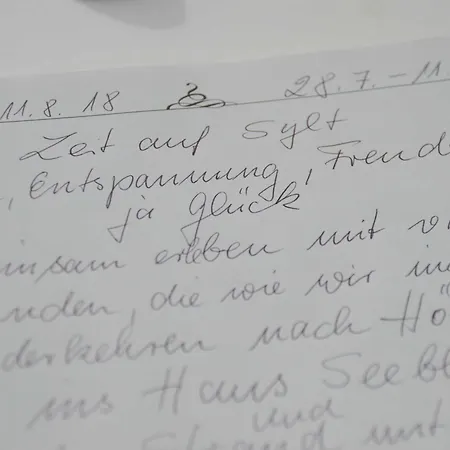 11.8.18 28.7.-11.
Zeit auf Sylt
, Entspannung, Freud
ja Glück
insam erleben mit v
nden, die wie wir im
derkehren nach Hö
ins Haus Seebl
und
Strand mit